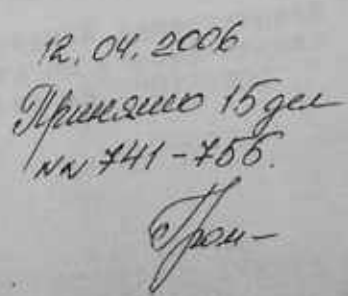 12.04.2006
Принято 15 дел
NN 741-755.
Гром-